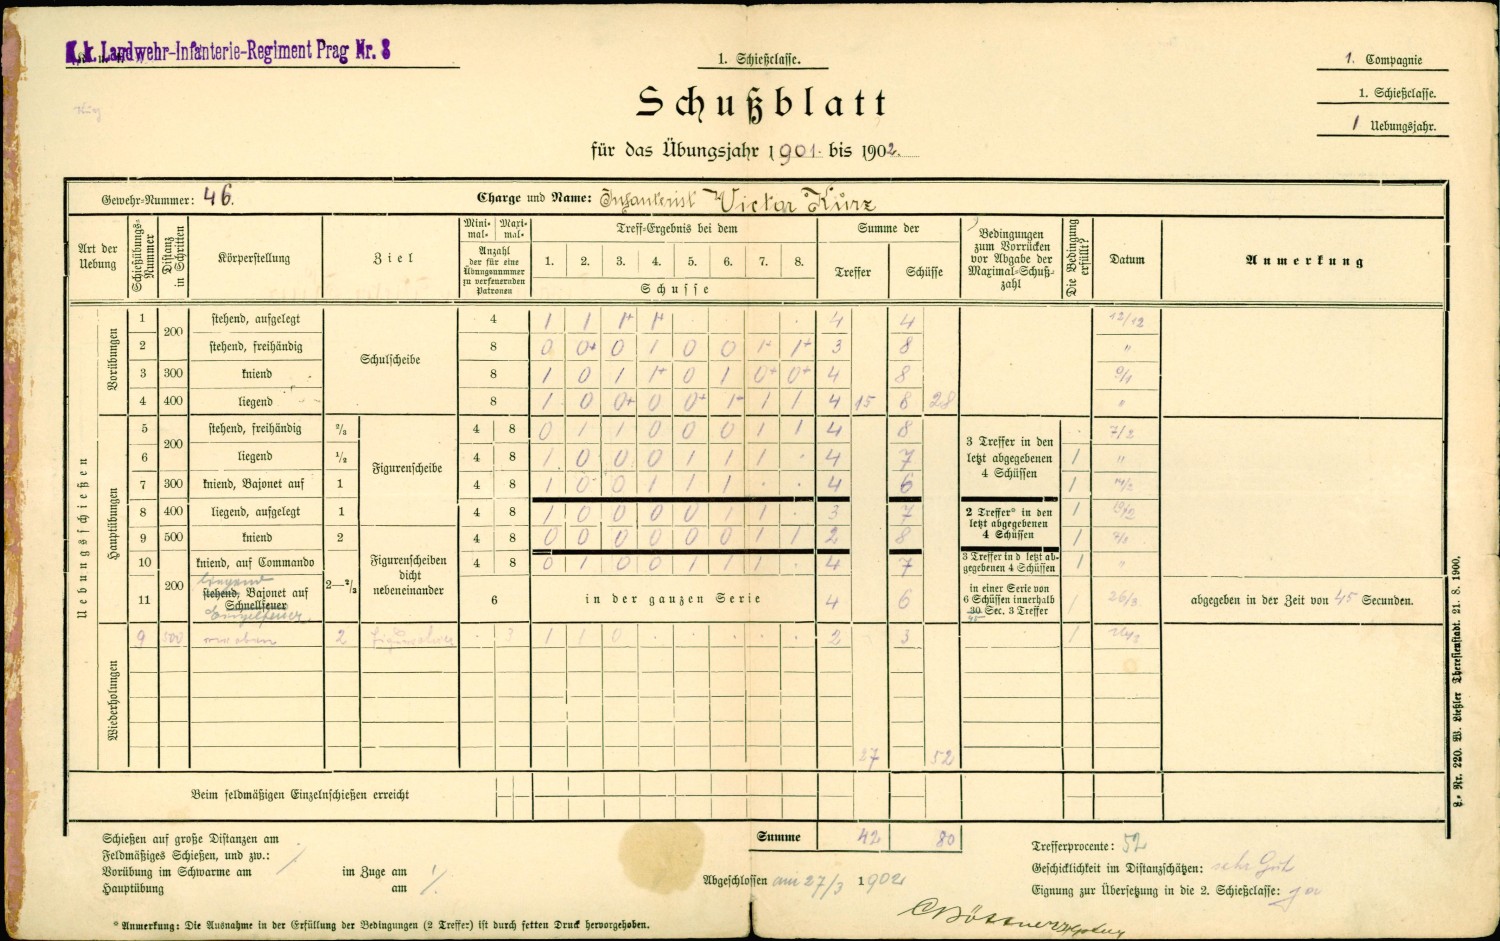 K.k. Landwehr-Infanterie-Regiment Prag Nr. 8
1. Schießclasse.
1. Compagnie
1. Schießclasse.
1 Uebungsjahr.
Schußblatt
für das Übungsjahr 1901. bis 1902.
Gewehr-Nummer: 46.
Charge und Name: Infanterist Victor Kürz
Art der Uebung
Schießübungs-Nummer
Distanz in Schritten
Körperstellung
Ziel
Mini-mal- Maxi-mal-
Anzahl der für eine Übungsnummer zu verfeuernden Patronen
Treff-Ergebnis bei dem
1. 2. 3. 4. 5. 6. 7. 8.
Schusse
Summe der
Treffer Schüsse
Bedingungen zum Vorrücken vor Abgabe der Maximal-Schuß-zahl
Die Bedingung erfüllt?
Datum
Anmerkung
Uebungsschießen
Vorübungen
1 200 stehend, aufgelegt Schulscheibe 4 1 1 1+ 1+ 4 4 12/12
2 stehend, freihändig 8 0 0+ 0 1 0 0 1+ 1+ 3 8 "
3 300 kniend 8 1 0 1 1+ 0 1 0+ 0+ 4 8 9/1
4 400 liegend 8 1 0 0+ 0 0+ 1+ 1 1 4 15 8 28 "
Hauptübungen
5 200 stehend, freihändig 2/3 Figurenscheibe 4 8 0 1 1 0 0 0 1 1 4 8 3 Treffer in den letzt abgegebenen 4 Schüssen 7/2
6 liegend 1/2 4 8 1 0 0 0 1 1 1 4 7 1 "
7 300 kniend, Bajonet auf 1 4 8 1 0 0 1 1 1 4 6 1
8 400 liegend, aufgelegt 1 4 8 1 0 0 0 0 1 1 3 7 2 Treffer* in den letzt abgegebenen 4 Schüssen 1
9 500 kniend 2 4 8 0 0 0 0 0 0 1 1 2 8
10 200 kniend, auf Commando 2—2/3 Figurenscheiben dicht nebeneinander 4 8 0 1 0 0 1 1 1 4 7 3 Treffer in d. letzt ab-gegebenen 4 Schüssen 1 "
liegend
11 stehend, Bajonet auf Schnellfeuer 6 in der ganzen Serie 4 6 in einer Serie von 6 Schüssen innerhalb 30 Sec. 3 Treffer 1 26/3 abgegeben in der Zeit von 45 Secunden.
Einzelfeuer
45
Wiederholungen
9 500 wie oben 2 3 1 1 0 2 3 1
27 52
Beim feldmäßigen Einzelnschießen erreicht
Summe 42 80
Schießen auf große Distanzen am
Feldmäßiges Schießen, und zw.:
Vorübung im Schwarme am im Zuge am
Hauptübung am
Abgeschlossen am 27/3 1902
Trefferprocente: 52
Geschicklichkeit im Distanzschätzen: sehr Gut
Eignung zur Übersetzung in die 2. Schießclasse: ja
* Anmerkung: Die Ausnahme in der Erfüllung der Bedingungen (2 Treffer) ist durch fetten Druck hervorgehoben.
L.- Nr. 220. W. Ließler Theresienstadt. 21. 8. 1900.